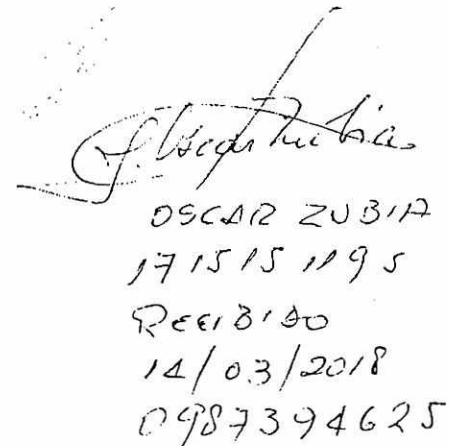 J. Oscar Zubia
OSCAR ZUBIA
1715151195
RECIBIDO
14/03/2018
0987394625